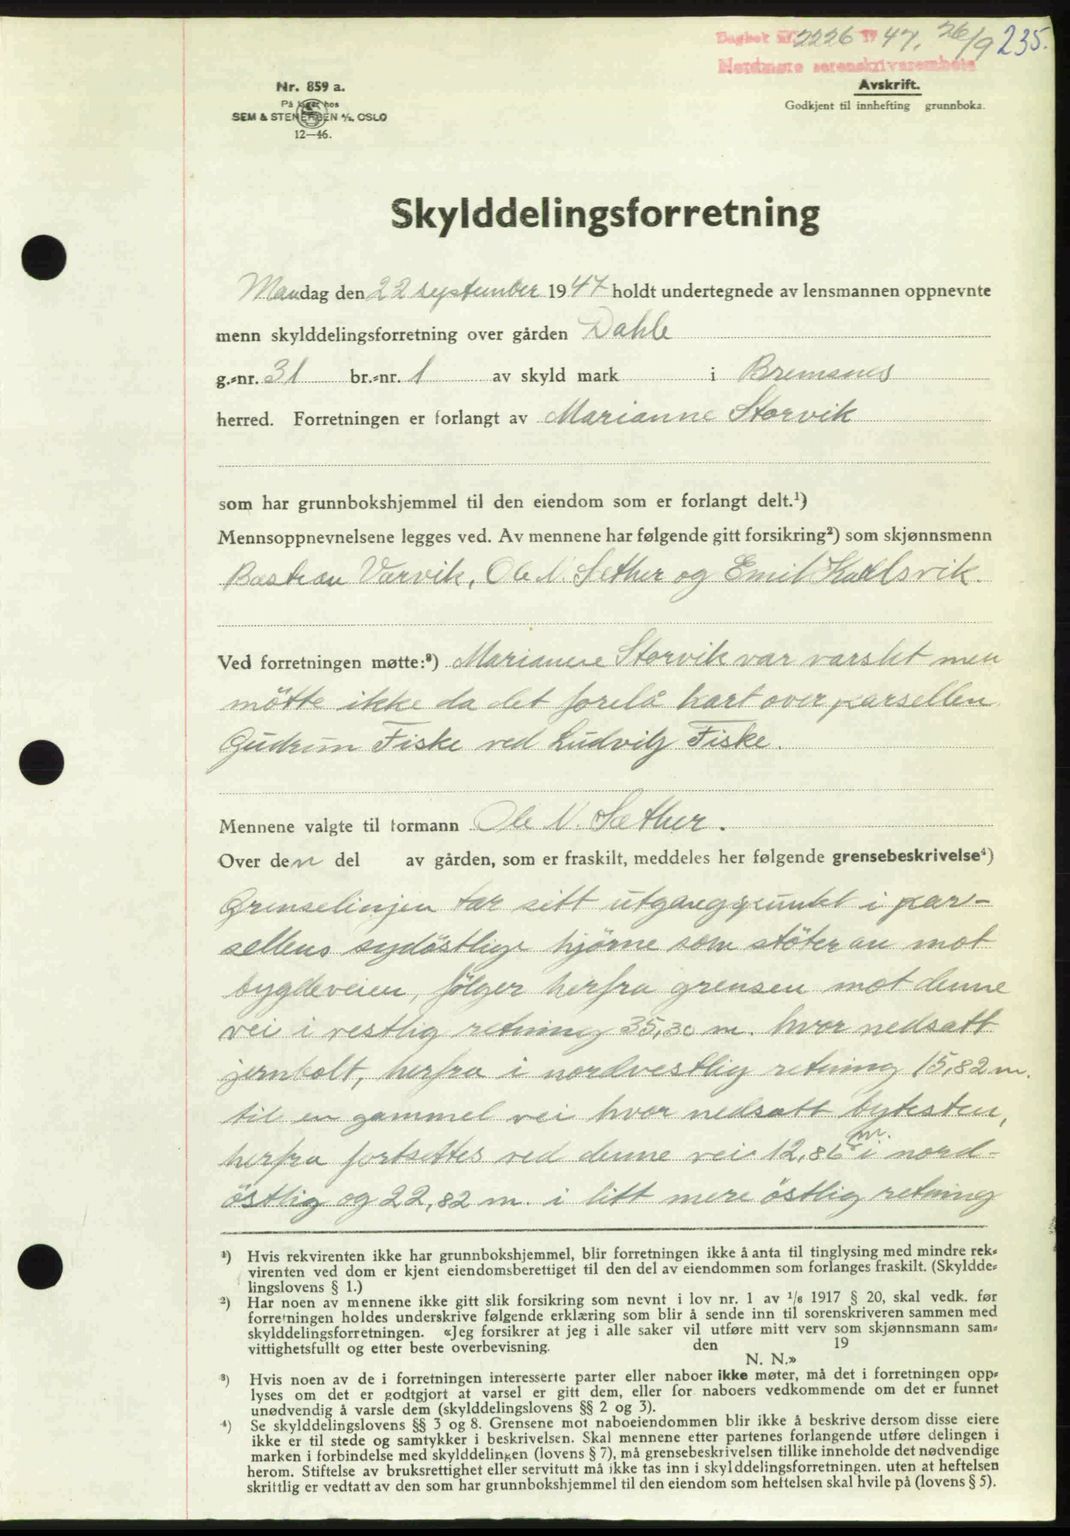 Dagbok nr. 2226 1947. 26/9 235.
Nordmøre sorenskriverembete
Nr. 859 a.
På lager hos
SEM & STENERSEN A/S, OSLO
12—46.
Avskrift.
Godkjent til innhefting grunnboka.
Skylddelingsforretning
Mandag den 22 september 1947 holdt undertegnede av lensmannen oppnevnte
menn skylddelingsforretning over gården Dahle
g.-nr. 31 br.-nr. 1 av skyld mark i Bremsnes
herred. Forretningen er forlangt av Marianne Storvik
som har grunnbokshjemmel til den eiendom som er forlangt delt.¹)
Mennsoppnevnelsene legges ved. Av mennene har følgende gitt forsikring²) som skjønnsmenn
Bastian Varvik, Ole N. Sæther og Emil Karlsvik.
Ved forretningen møtte:³) Marianne Storvik var varslet men
møtte ikke da det forelå kart over parsellen
Gudrun Fiske ved Ludvig Fiske.
Mennene valgte til formann Ole N. Sæther.
Over den del av gården, som er fraskilt, meddeles her følgende grensebeskrivelse⁴)
Grenselinjen tar sitt utgangspunkt i par-
sellens sydöstlige hjörne som stöter an mot
bygdeveien, fölger herfra grensen mot denne
vei i vestlig retning 35,30 m. hvor nedsatt
jernbolt, herfra i nordvestlig retning 15,82 m.
til en gammel vei hvor nedsatt bytesten,
herfra fortsettes ved denne vei 12,86 m. i nord-
östlig og 22,82 m. i litt mere östlig retning
¹) Hvis rekvirenten ikke har grunnbokshjemmel, blir forretningen ikke å anta til tinglysing med mindre rek-
virenten ved dom er kjent eiendomsberettiget til den del av eiendommen som forlanges fraskilt. (Skyldde-
lingslovens § 1.)
²) Har noen av mennene ikke gitt slik forsikring som nevnt i lov nr. 1 av 1/6 1917 § 20, skal vedk. før
forretningen holdes underskrive følgende erklæring som blir å sende inn til sorenskriveren sammen med
skylddelingsforretningen. «Jeg forsikrer at jeg i alle saker vil utføre mitt verv som skjønnsmann sam-
vittighetsfullt og etter beste overbevisning. den 19
N. N.»
³) Hvis noen av de i forretningen interesserte parter eller naboer ikke møter, må det i forretningen opp-
lyses om det er godtgjort at varsel er gitt dem, eller for naboers vedkommende om det er funnet
unødvendig å varsle dem (skylddelingslovens §§ 2 og 3).
⁴) Se skylddelingslovens §§ 3 og 8. Grensene mot naboeiendommen blir ikke å beskrive dersom disse eiere
ikke er til stede og samtykker i beskrivelsen. Skal mennene etter partenes forlangende utføre delingen i
marken i forbindelse med skylddelingen (lovens § 7), må grensebeskrivelsen tillike inneholde det nødvendige
herom. Stiftelse av bruksrettighet eller servitutt må ikke tas inn i skylddelingsforretningen, uten at heftelsen
skriftlig er vedtatt av den som har grunnbokshjemmel til den eiendom som heftelsen skal hvile på (lovens § 5).